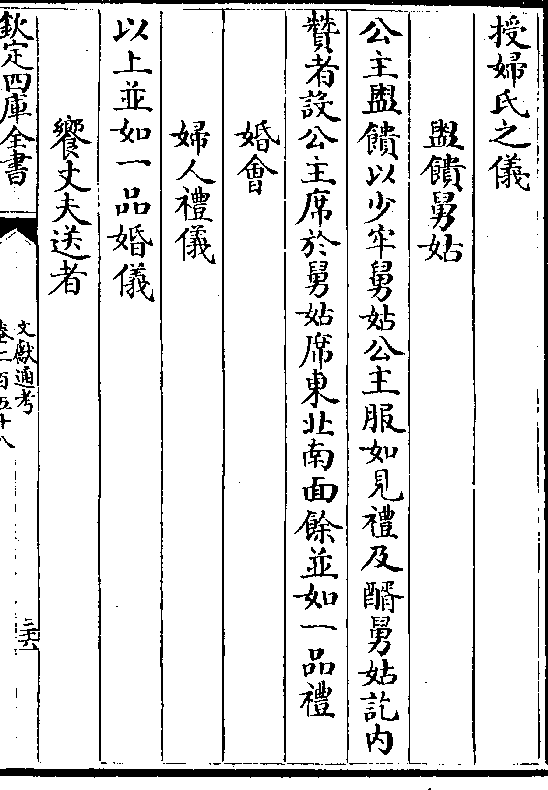 授婦氏之儀
盥饋舅姑
公主盥饋以少牢舅姑公主服如見禮及酳舅姑訖内
贊者設公主席於舅姑席東北南面餘並如一品禮
婚會
婦人禮儀
以上並如一品婚儀
饗丈夫送者
欽定四庫全書
文獻通考
卷二百五十八
三六